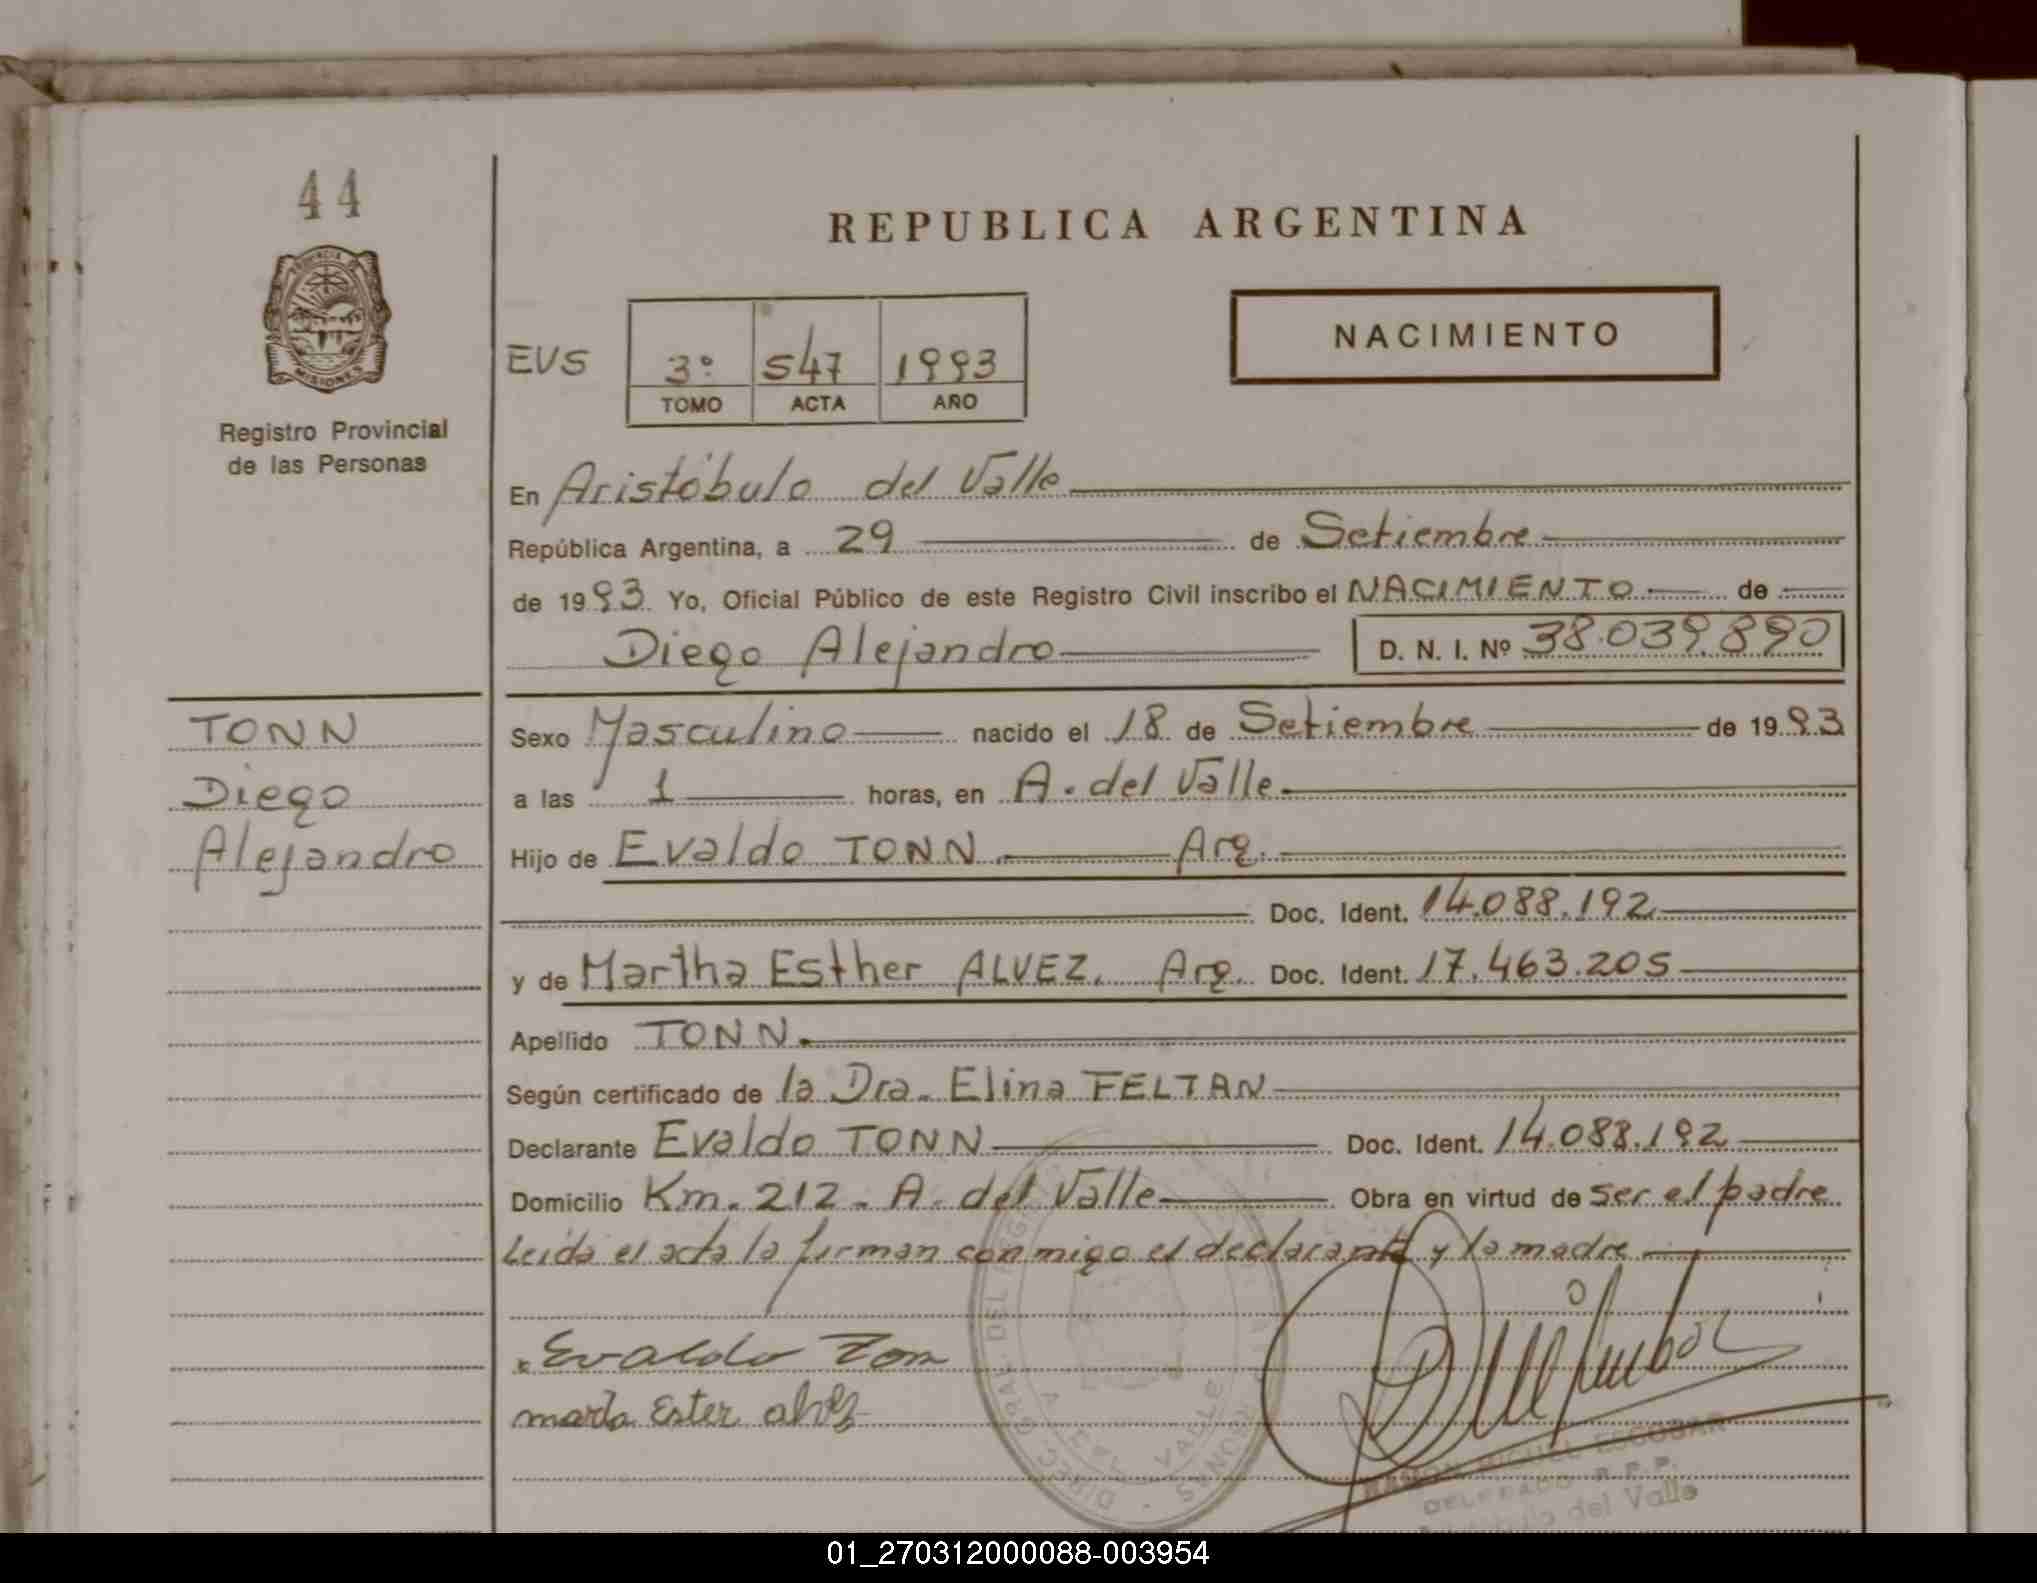 44
REPUBLICA ARGENTINA
PROVINCIA DE
MISIONES
Registro Provincial
de las Personas
EVS
3º 547 1993
TOMO ACTA AÑO
NACIMIENTO
En Aristóbulo del Valle
República Argentina, a 29 de Setiembre
de 1993 Yo, Oficial Público de este Registro Civil inscribo el NACIMIENTO de
Diego Alejandro D. N. I. Nº 38.039.890
TONN
Diego
Alejandro
Sexo Masculino nacido el 18 de Setiembre de 1993
a las 1 horas, en A. del Valle
Hijo de Evaldo TONN Arg.
Doc. Ident. 14.088.192
y de Martha Esther ALVEZ. Arg. Doc. Ident. 17.463.205
Apellido TONN.
Según certificado de la Dra. Elina FELTAN
Declarante Evaldo TONN Doc. Ident. 14.088.192
Domicilio Km. 212 - A. del Valle Obra en virtud de ser el padre
Leída el acta la firman conmigo el declarante y la madre
Evaldo Ton
marta Ester alvez
RAMON MIGUEL ESCOBAR
DELEGADO R.P.P.
Aristóbulo del Valle
01_270312000088-003954